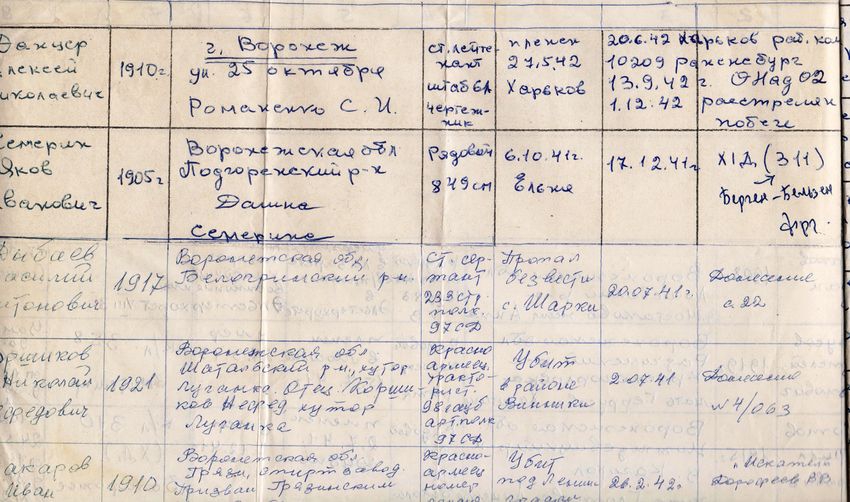 Данцер
лексей
иколаевич
1910г.
г. Воронеж
ул. 25 октября
Романенко С. И.
ст. лейте-
нант
штаб 6А
чертеж-
ник
пленен
27.5.42
Харьков
20.6.42 Харьков раб. ком
10209 ранжсбург
13.9.42 г. Офлад 62
1.12.42 расстрелян
побеге
Семерин
Яков
ванович
1905г
Воронежская обл
Подгоренский р-н
Дашна
Семерина
Рядовой
849 сп
6.10.41г.
Ельня
17.12.41г.
XI Д, (311)
Берген-Бельзен
Фрг.
Дыбаев
асилий
итонович
1917
Воронежская обл,
Белогоринский р-н
Ст сер-
жант
233 стр.
полк
97 СД
Пропал
без вести
с. Шарки
20.07.41г
Донесение
с. 22
оршиков
Николай
ефедович
1921
Воронежская обл
Шаталовский р-н, хутор
Луганка. Отец Корши-
ков Нефед хутор
Луганка
Красно-
армеец.
тракто-
рист.
98 гауб
арт.полк
97 СД
Убит
в районе
Виньшки
2.07.41
Донесение
№ 4/063
акаров
Иван
1910
Воронежская обл.
Грязи, спиртзавод.
Призван Грязинским
Красно-
армеец
номер
Убит
под Ленин
26.2.42г.
"Искатель
Дорофеев В.Р.